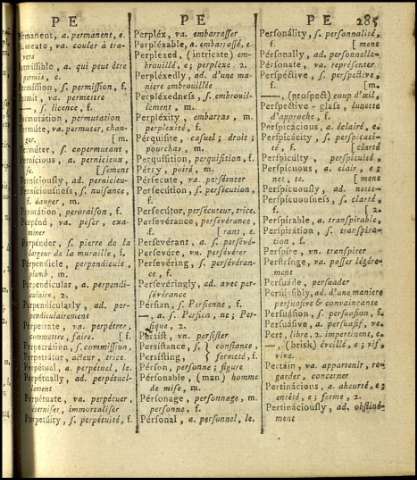 P E
P E
P E 285
Permanent, a. permanent, e.
va. couler à tra-
vers
a. qui peut être
permis, e.
Permission, s. permission, f.
Permit, va. permettre
—, s. licence, f.
Permutation, permutation
Permute, va. permuter, chan-
ger, [m.
Permuter, s. copermutant
Pernicious, a. pernicieux,
se. [sement
Perniciously, ad. pernicieu-
Perniciousness, s. nuisance,
f. danger, m.
Peroration, peroraison, f.
Perpend, va. peser, exa-
miner
Perpender, s. pierre de la
largeur de la muraille, f.
Perpendicle, perpendicule,
plomb, m.
Perpendicular, a. perpendi-
culaire, 2.
Perpendicularly, ad. per-
perdiculairement
Perpetrate, va. perpétrer,
commettre, faire, [f.
Perpetration, s. commission,
Perpetrator, acteur, trice.
Perpétual, a. perpétuel, le.
Perpétually, ad. perpétuel-
lement
Perpétuate, va. perpétuer,
éterniser, immortaliser
Perpetúity, s. perpétuité, f.
Perpléx, va. embarrasser
Perpléxable, a. embarrassé, e.
Perplexed, (intricate) em-
brouillé, e; perplexe, 2.
Perpléxedly, ad. d'une ma-
niere embrouillée
Perpléxedness, s. embrouil-
lement, m.
Perpléxity, embarras, m.
perplexité, f.
Pérquisite, casuel; droit;
pourchas, m.
Perquisition, perquisition, f.
Pérry, poiré, m.
Pérsecute, va. persécuter
Persecútion, s. persécution,
f.
Pérsecutor, persécuteur, trice.
Persevérance, persévérance,
f. [rant, e.
Persevérant, a. s. persévé-
Persevére, vn. persévérer
Persevéring, s. persévéran-
ce, f.
Persevéringly, ad. avec per-
sévérance
Pérsian, s. Persienne, f.
—, a. s. Persan, ne; Per-
sique, 2.
Persist, vn. persister
Persistance, s. { constance,
Persisting, { fermeté, f.
Pérson, personne; figure
Pérsonable, (man) homme
de mise, m.
Pérsonage, personnage, m.
personne, f.
Pérsonal, a. personnel, le.
Personálity, s. personnalité,
f. [ment
Pérsonally, ad. personnelle-
Pérsonate, va. représenter
Perspéctive, s. perspective,
f. [m.
—, (prospect) coup d'œil,
Perspéctive-glass, lunette
d'approche, f.
Perspicácious, a. éclairé, e.
Perspicácity, s. perspicaci-
té, f. [clarté
Perspicuíty, perspicuité,
Perspicuous, a. clair, e;
net, te. [ment
Perspícuously, ad. nette-
Perspícuousness, s. clarté,
f. [2.
Perspírable, a. transpirable,
Perspirátion, s. transpira-
tion, f.
Perspíre, vn. transpirer
Perstrínge, va. passer légére-
ment
Persuáde, persuader
Persuásibly, ad. d'une maniere
persuasive & convaincante
Persuásion, s. persuasion, f.
Persuásive, a. persuasif, ve.
Pert, libre, 2. impertinent, e.
—, (brisk) éveillé, e; vif,
vive.
Pertáin, va. appartenir, re-
garder, concerner
Pertinácious, a. ahcurté, e;
entêté, e; ferme, 2.
Pertináciously, ad. obstiné-
ment